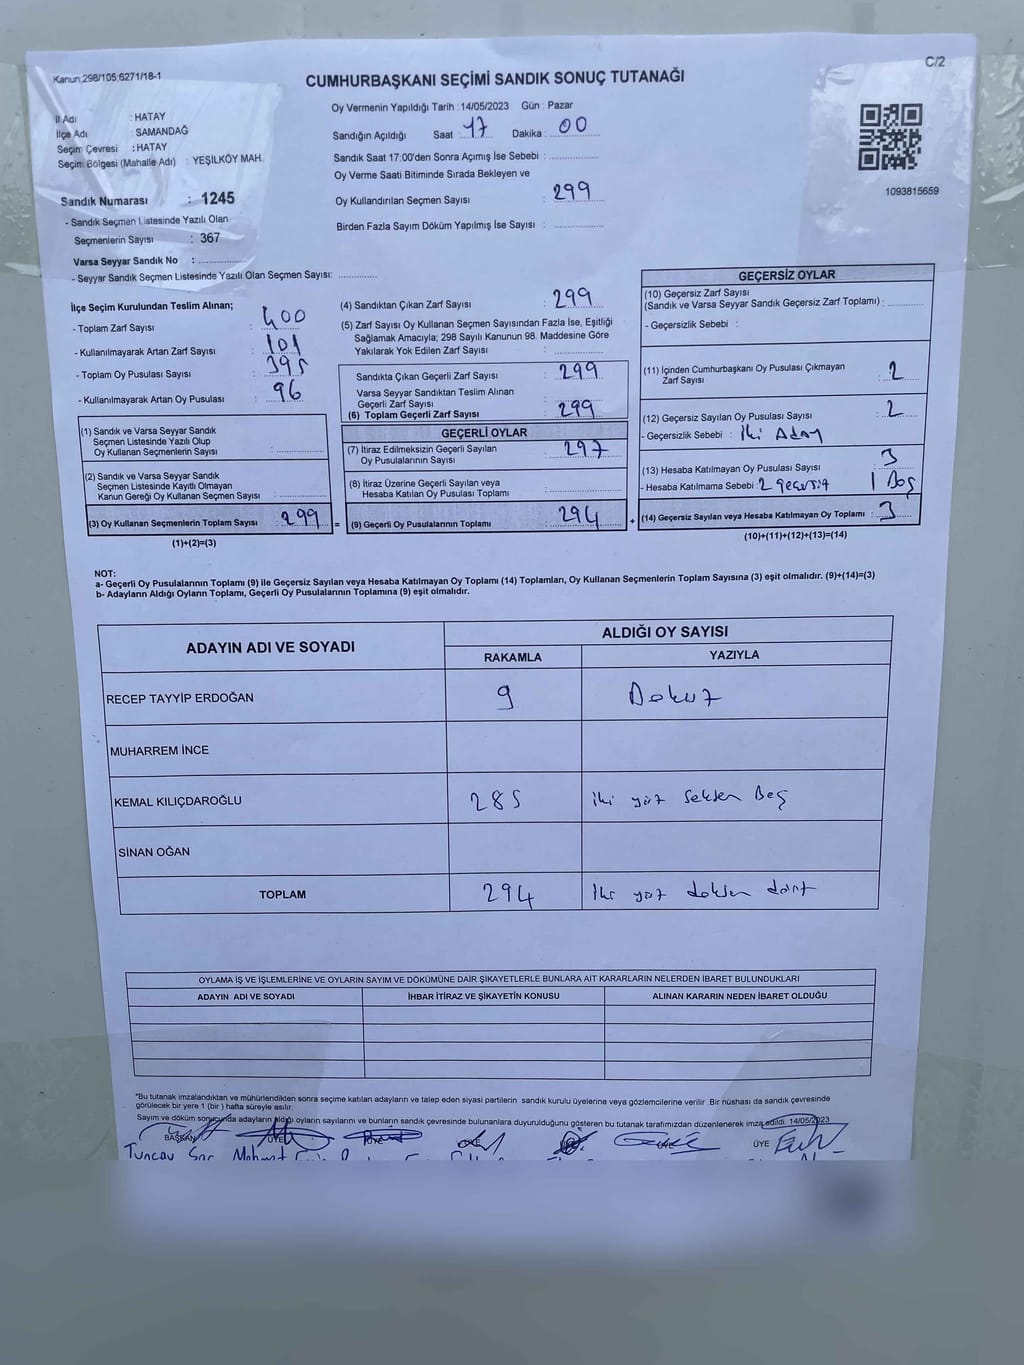 Kanun,298/105,6271/18-1
C/2
CUMHURBAŞKANI SEÇİMİ SANDIK SONUÇ TUTANAĞI
İl Adı : HATAY
İlçe Adı : SAMANDAĞ
Seçim Çevresi : HATAY
Seçim Bölgesi (Mahalle Adı) : YEŞİLKÖY MAH.
Oy Vermenin Yapıldığı Tarih :14/05/2023 Gün : Pazar
Sandığın Açıldığı Saat : 17 Dakika : 00
Sandık Saat 17:00'den Sonra Açımış İse Sebebi :
Oy Verme Saati Bitiminde Sırada Bekleyen ve
Oy Kullandırılan Seçmen Sayısı : 299
Birden Fazla Sayım Döküm Yapılmış İse Sayısı :
1093815659
Sandık Numarası : 1245
- Sandık Seçmen Listesinde Yazılı Olan
Seçmenlerin Sayısı : 367
Varsa Seyyar Sandık No :
- Seyyar Sandık Seçmen Listesinde Yazılı Olan Seçmen Sayısı:
İlçe Seçim Kurulundan Teslim Alınan;
- Toplam Zarf Sayısı : 400
- Kullanılmayarak Artan Zarf Sayısı : 101
- Toplam Oy Pusulası Sayısı : 395
- Kullanılmayarak Artan Oy Pusulası : 96
(1) Sandık ve Varsa Seyyar Sandık
Seçmen Listesinde Yazılı Olup
Oy Kullanan Seçmenlerin Sayısı :
(2) Sandık ve Varsa Seyyar Sandık
Seçmen Listesinde Kayıtlı Olmayan
Kanun Gereği Oy Kullanan Seçmen Sayısı :
(3) Oy Kullanan Seçmenlerin Toplam Sayısı : 299 =
(1)+(2)=(3)
(4) Sandıktan Çıkan Zarf Sayısı : 299
(5) Zarf Sayısı Oy Kullanan Seçmen Sayısından Fazla İse, Eşitliği
Sağlamak Amacıyla; 298 Sayılı Kanunun 98. Maddesine Göre
Yakılarak Yok Edilen Zarf Sayısı :
Sandıkta Çıkan Geçerli Zarf Sayısı : 299
Varsa Seyyar Sandıktan Teslim Alınan
Geçerli Zarf Sayısı :
(6) Toplam Geçerli Zarf Sayısı : 299
GEÇERLİ OYLAR
(7) İtiraz Edilmeksizin Geçerli Sayılan
Oy Pusulalarının Sayısı : 297
(8) İtiraz Üzerine Geçerli Sayılan veya
Hesaba Katılan Oy Pusulası Toplamı :
(9) Geçerli Oy Pusulalarının Toplamı : 294 +
GEÇERSİZ OYLAR
(10) Geçersiz Zarf Sayısı
(Sandık ve Varsa Seyyar Sandık Geçersiz Zarf Toplamı) :
- Geçersizlik Sebebi :
(11) İçinden Cumhurbaşkanı Oy Pusulası Çıkmayan
Zarf Sayısı : 2
(12) Geçersiz Sayılan Oy Pusulası Sayısı : 2
- Geçersizlik Sebebi : iki Aday
(13) Hesaba Katılmayan Oy Pusulası Sayısı : 3
- Hesaba Katılmama Sebebi : 2 geçersiz 1 Boş
(14) Geçersiz Sayılan veya Hesaba Katılmayan Oy Toplamı : 3
(10)+(11)+(12)+(13)=(14)
NOT:
a- Geçerli Oy Pusulalarının Toplamı (9) ile Geçersiz Sayılan veya Hesaba Katılmayan Oy Toplamı (14) Toplamları, Oy Kullanan Seçmenlerin Toplam Sayısına (3) eşit olmalıdır. (9)+(14)=(3)
b- Adayların Aldığı Oyların Toplamı, Geçerli Oy Pusulalarının Toplamına (9) eşit olmalıdır.
ADAYIN ADI VE SOYADI ALDIĞI OY SAYISI
RAKAMLA YAZIYLA
RECEP TAYYİP ERDOĞAN 9 Dokuz
MUHARREM İNCE
KEMAL KILIÇDAROĞLU 285 iki yüz seksen Beş
SİNAN OĞAN
TOPLAM 294 iki yüz doksan dört
OYLAMA İŞ VE İŞLEMLERİNE VE OYLARIN SAYIM VE DÖKÜMÜNE DAİR ŞİKAYETLERLE BUNLARA AİT KARARLARIN NELERDEN İBARET BULUNDUKLARI
ADAYIN ADI VE SOYADI İHBAR İTİRAZ VE ŞİKAYETİN KONUSU ALINAN KARARIN NEDEN İBARET OLDUĞU
*Bu tutanak imzalandıktan ve mühürlendikten sonra seçime katılan adayların ve talep eden siyasi partilerin sandık kurulu üyelerine veya gözlemcilerine verilir .Bir nüshası da sandık çevresinde
görülecek bir yere 1 (bir ) hafta süreyle asılır.
Sayım ve döküm sonucunda adayların aldığı oyların sayılarını ve bunların sandık çevresinde bulunanlara duyurulduğunu gösteren bu tutanak tarafımızdan düzenlenerek imza edildi. 14/05/2023
BAŞKAN ÜYE ÜYE
Tuncay Mehmet